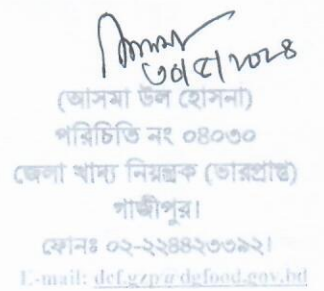 আসমা
৩০/৫/২০২৪
(আসমা উল হোসনা)
পরিচিতি নং ০৪০৩০
জেলা খাদ্য নিয়ন্ত্রক (ভারপ্রাপ্ত)
গাজীপুর।
ফোনঃ ০২-২২৪৪২৩৩৯২।
E-mail: dcf.gzp@dgfood.gov.bd